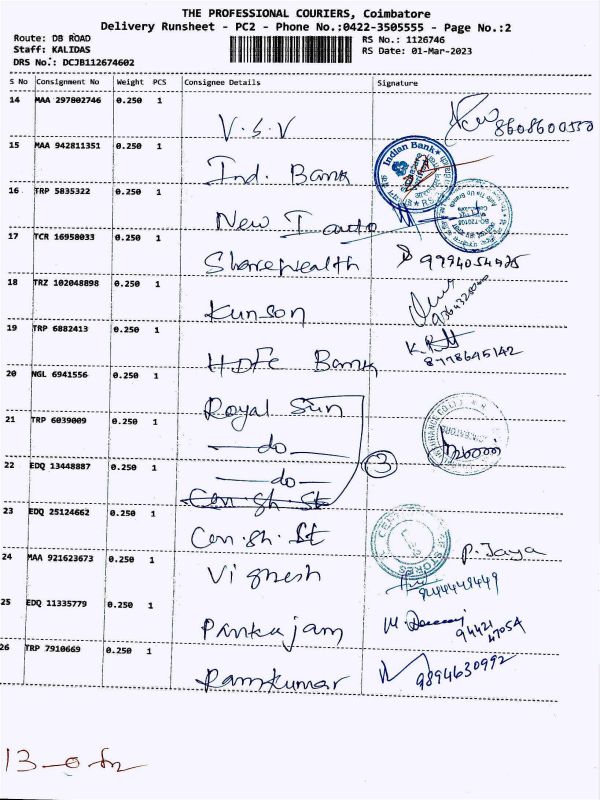 THE PROFESSIONAL COURIERS, Coimbatore
Delivery Runsheet - PC2 - Phone No.:0422-3505555 - Page No.:2
Route: DB ROAD
RS No.: 1126746
Staff: KALIDAS
RS Date: 01-Mar-2023
DRS No.: DCJB112674602
S No Consignment No Weight PCS Consignee Details Signature
14 MAA 297802746 0.250 1 V.S.V 8608600550
15 MAA 942811351 0.250 1 Ind. Bank Indian Bank
16 TRP 5835322 0.250 1 New
17 TCR 16958033 0.250 1 Sharewealth 9994054925
18 TRZ 102048898 0.250 1 Kunson
19 TRP 6882413 0.250 1 HDFC Bank 8778645142
20 NGL 6941556 0.250 1 Royal Sun
21 TRP 6039009 0.250 1 —do—
22 EDQ 13448887 0.250 1 —do— 3
Cen.sh.St
23 EDQ 25124662 0.250 1 Cen.sh.St P. Jaya
24 MAA 921623673 0.250 1 Vignesh 9244449449
25 EDQ 11335779 0.250 1 Pankajam 94421 47054
26 TRP 7910669 0.250 1 Ramkumar 9894630992